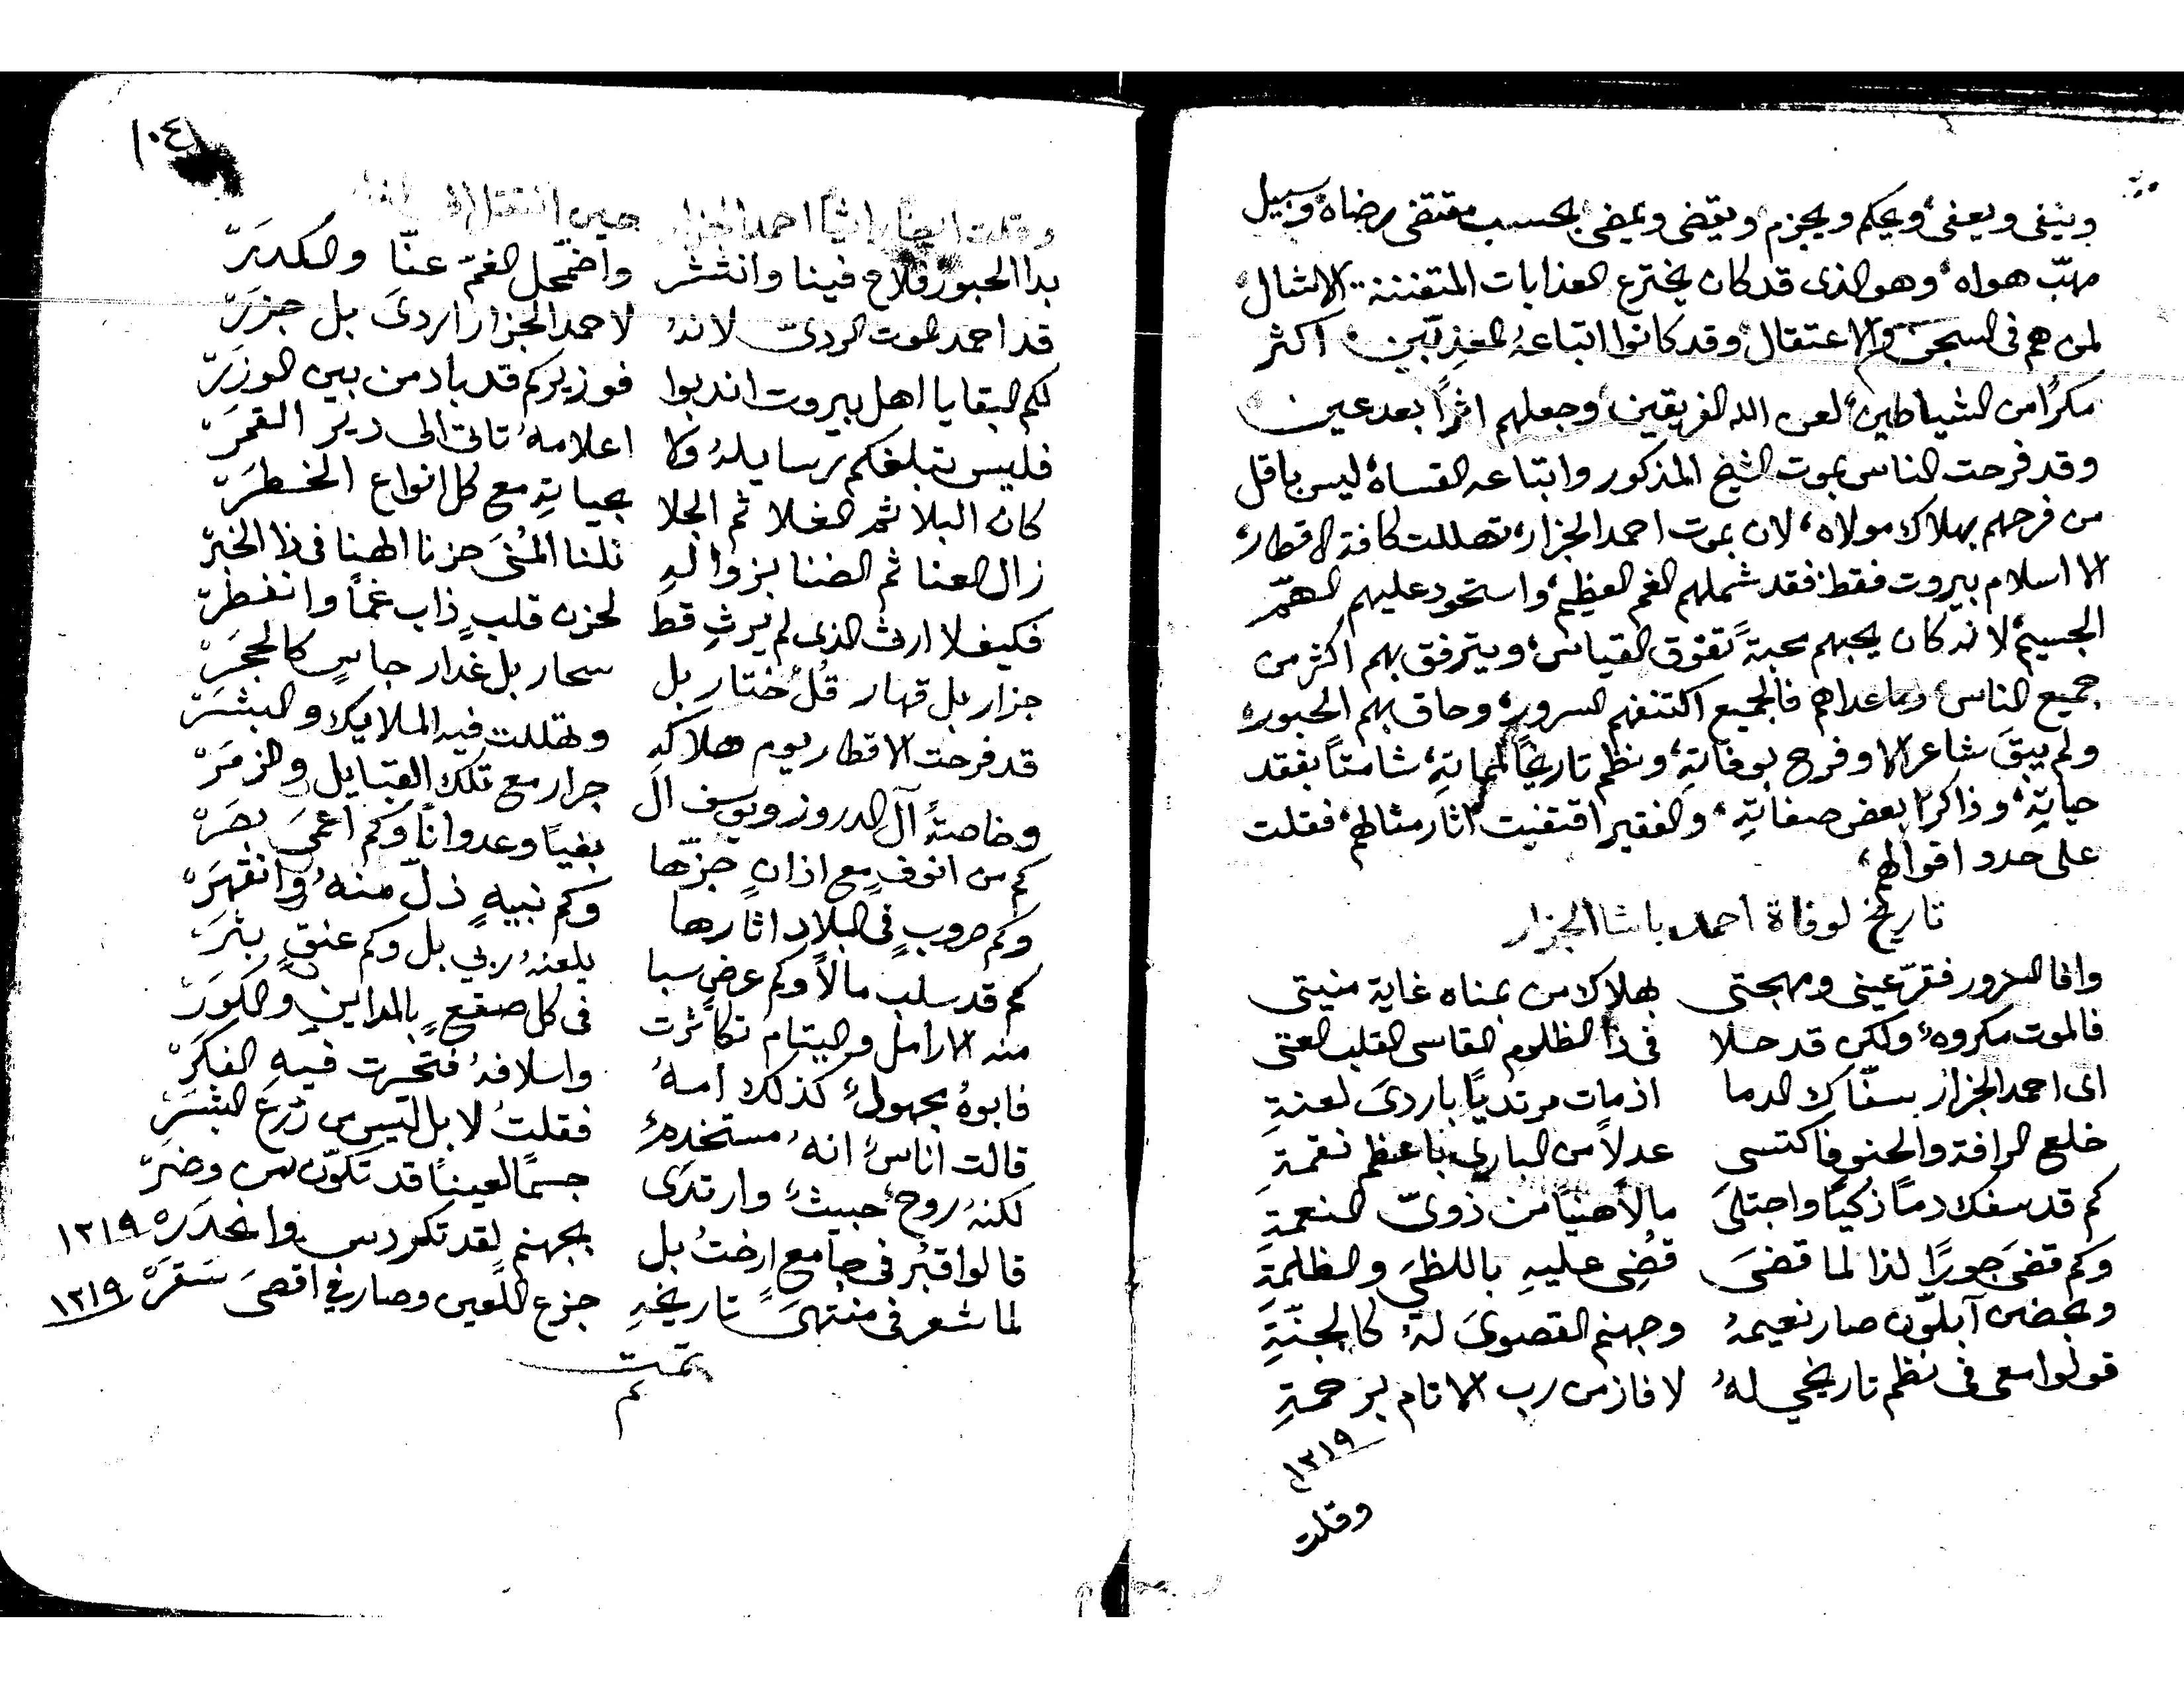 وينفى ويعفى، ويحكم ويجزم، ويقضى ويمضى، بحسب مقتضى رضاه، وسبيل
مهبّ هواه، وهو الذى قد كان يخترع العذابات المتفننة الاشال،
لمن هم فى السجن والاعتقال، وقد كانوا اتباعهُ المعذِّبين، اكثر
مكرًا من الشياطين، لعن الله الفريقين، وجعلهم اثرًا بعد عين
وقد فرحت الناس بموت الشيخ المذكور واتباعه القساه، ليس باقل
من فرحهم بهلاك مولاه، لان بموت احمد الجزار، تهللت كافة الاقطار،
الا اسلام بيروت فقط، فقد شملهم الغم العظيم، واستحود عليهم الهمّ
الجسيم، لانه كان يحبهم محبةً تفوق القياس، ويترفق بهم اكثر من
جميع الناس، وما عداهم فالجميع اكتنفهم السرور، وحاق بهم الحبور،
ولم يبقَ شاعر الا وفرح بوفاتهِ، ونظم تاريخًا لمماتهِ، شامتًا بفقد
حياتهِ، وذاكرا بعض صفاتهِ، والفقير اقتفيت اثار مثالهم، فقلت
على حدو اقوالهم،
تاريخ لوفاة احمد باشا الجزار
وافا السرور فقرّ عينى ومهجتى بهلاك من بمناه غاية منيتى
فالموت مكروهٌ، ولكن قد حلا فى ذا الظلوم القاسى القلب العتى
اى احمد الجزار سفّاك الدما اذ مات مرتديًا باردىَ لعنةِ
خلع الرافة والحنو فاكتسى عدلاً من البارى باعظم نقمةِ
كم قد سفك دمًا زكيًا واجتلىَ مالاً هنيًا من ذوىّ النعمةِ
وكم قضىَ جورًا لذا لما قضىَ قُضِى عليهِ باللظىَ والظلمةِ
وبحضن آبلّون صار نعيمهُ وجهنم القصوىَ لهُ كالجنّةِ
قولوا معى فى نظم تاريخي لهُ لا فاز من رب الانام برحمةِ
١٢١٩
وقلت
١٠٤
وقلت ايضًا راثيًا احمد الجزار حين انتقاله
بدا الحبور فلاح فينا وانتشر واضمحل الغمّ عنّا والكدرَ
قد احمد الموت الردىّ لانهُ لاحمد الجزار اردىَ بل جزرَ
لكم البقا يا اهل بيروت اندبوا فوزيركم قد باد من بين الوزرَ
فليس تبلغكم رسايلهُ ولا اعلامهُ تاتى الى دير القمرَ
كان البلا ثم الغلا ثم الجلا بحياتهِ مع كل انواع الخطرَ
زال العنا ثم الضنا بزوالهِ نلنا المُنىَ حزنا الهنا فى ذا الخبرْ
فكيف لا ارث الذى لم يرثِ قط لحزن قلبٍ ذاب غمًا وانفطرْ
جزار بل قهار قُل ختار بل سحار بل غدار جاسٍ كالحجرَ
قد فرحت الاقطار يوم هلاكهِ وتهللت فيه الملايك والبشرَ
وخاصتهً آل الدروز ويوسف ال جرار مع تلك القبايل والزمرَ
كم من انوفٍ مع اذانٍ جزّها بغيًا وعدوانًا وكم اعمىَ بصرَ
وكم حروبٍ فى البلاد اثارها وكم نبيهٍ ذلّ منهُ وانقهرَ
كم قد سلب مالاً وكم عرضٍ سبا يلعنهُ ربي بل وكم عنقٍ بترَ
منه الارامل واليتام تكاثرت فى كل صقعٍ بالمداينِ والكورَ
فابوهُ مجهولٌ كذلك امهُ واسلافهُ فتحيرت فيهِ الفكرَ
قالت اناسٌ انهُ مستخدمٌ فقلتُ لا بل ليس من زرع البشرَ
لكنهُ روحٌ خبيثٌ وارتدىَ جسمًا لعينًا قد تكوّن من وضرَ
قالوا قُبر فى جامعٍ ارختُ بل بجهنم لقد تكردس وانحدرَ ١٢١٩
لما شعر فى منتهىَ تاريخهِ جزع اللعين وصار فى اقصىَ سقرَ ١٢١٩
تمت
م